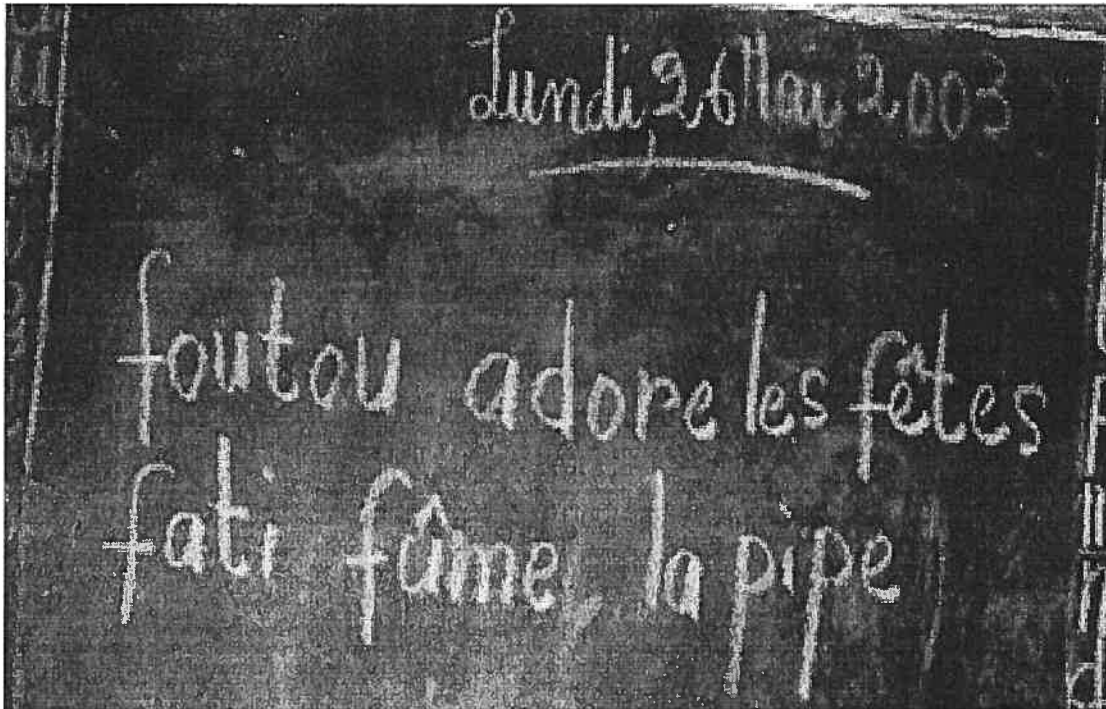 Lundi, 26 Mai 2003
foutou adore les fêtes
fati fûme la pipe